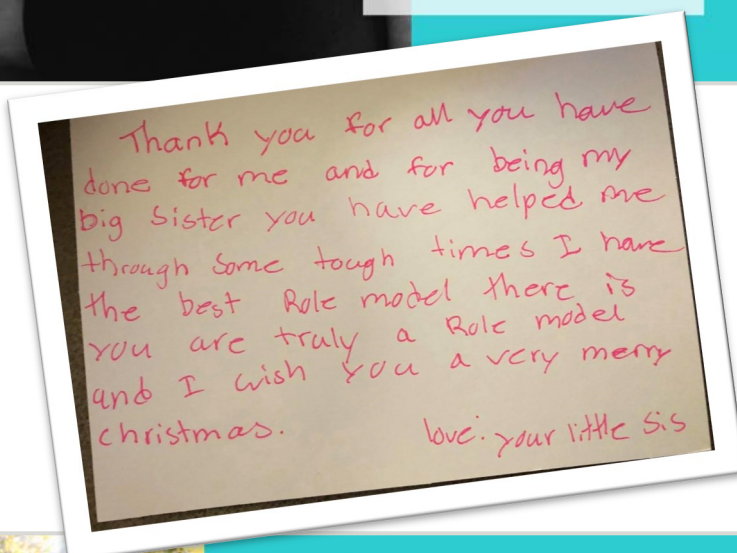 Thank you for all you have
done for me and for being my
big sister you have helped me
through some tough times I have
the best Role model there is
you are truly a Role model
and I wish you a very merry
christmas.
love: your little sis